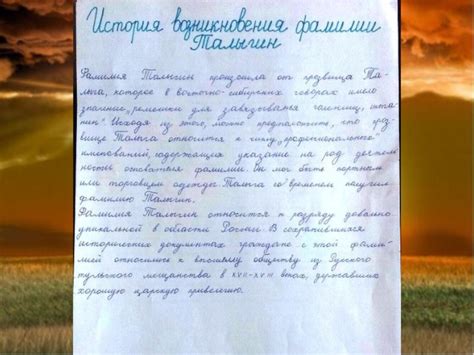 История возникновения фамилии
Талыгин
Фамилия Талыгин произошла от прозвища Та-
лыга, которое в восточно-сибирских говорах имело
значение „ремешки для завязывания голенищ, шта-
нин". Исходя из этого, можно предположить, что проз-
вище Талыга относится к числу „профессиональных"
именований, содержащих указание на род деятель-
ности основателя фамилии. Он мог быть портным
или торговцем одежды. Талыга со временем получил
фамилию Талыгин.
Фамилия Талыгин относится к разряду довольно
уникальной в области России. В сохранившихся
исторических документах граждане с этой фами-
лией относились к высшему обществу из Русского
тульского мещанства в XVII-XVIII веках, державших
хорошую царскую привелегию.